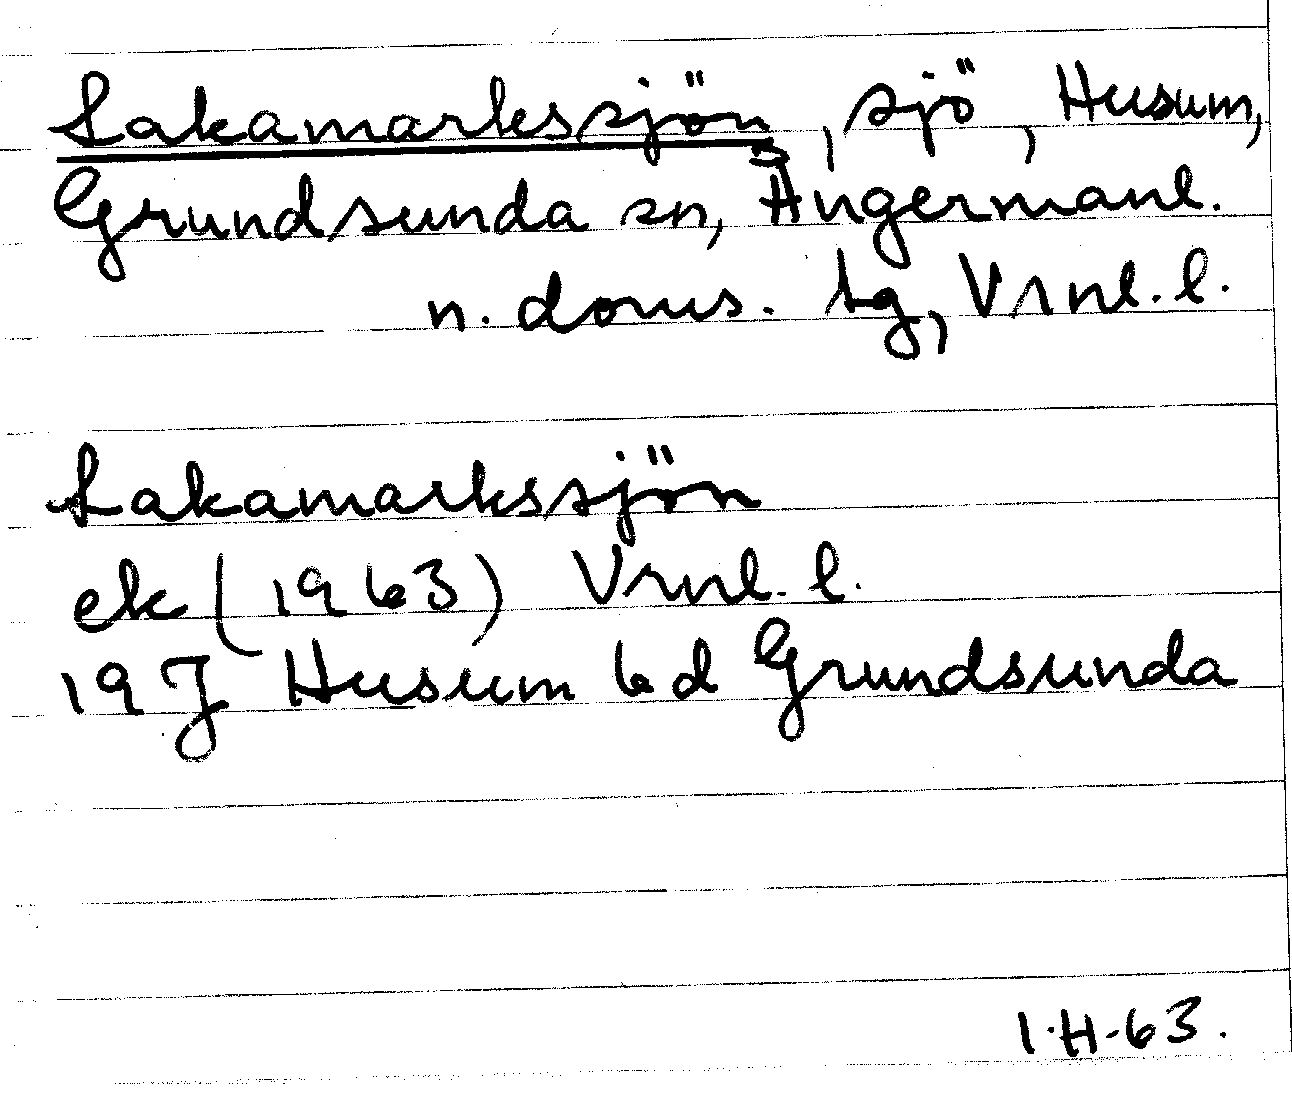 Lakamarkssjön, sjö, Husum,
Grundsunda sn, Ångermanl.
n. doms. tg, Vrnl. l.
Lakamarkssjön
ek (1963) Vrnl. l.
19J Husum bd Grundsunda
I.H-63.